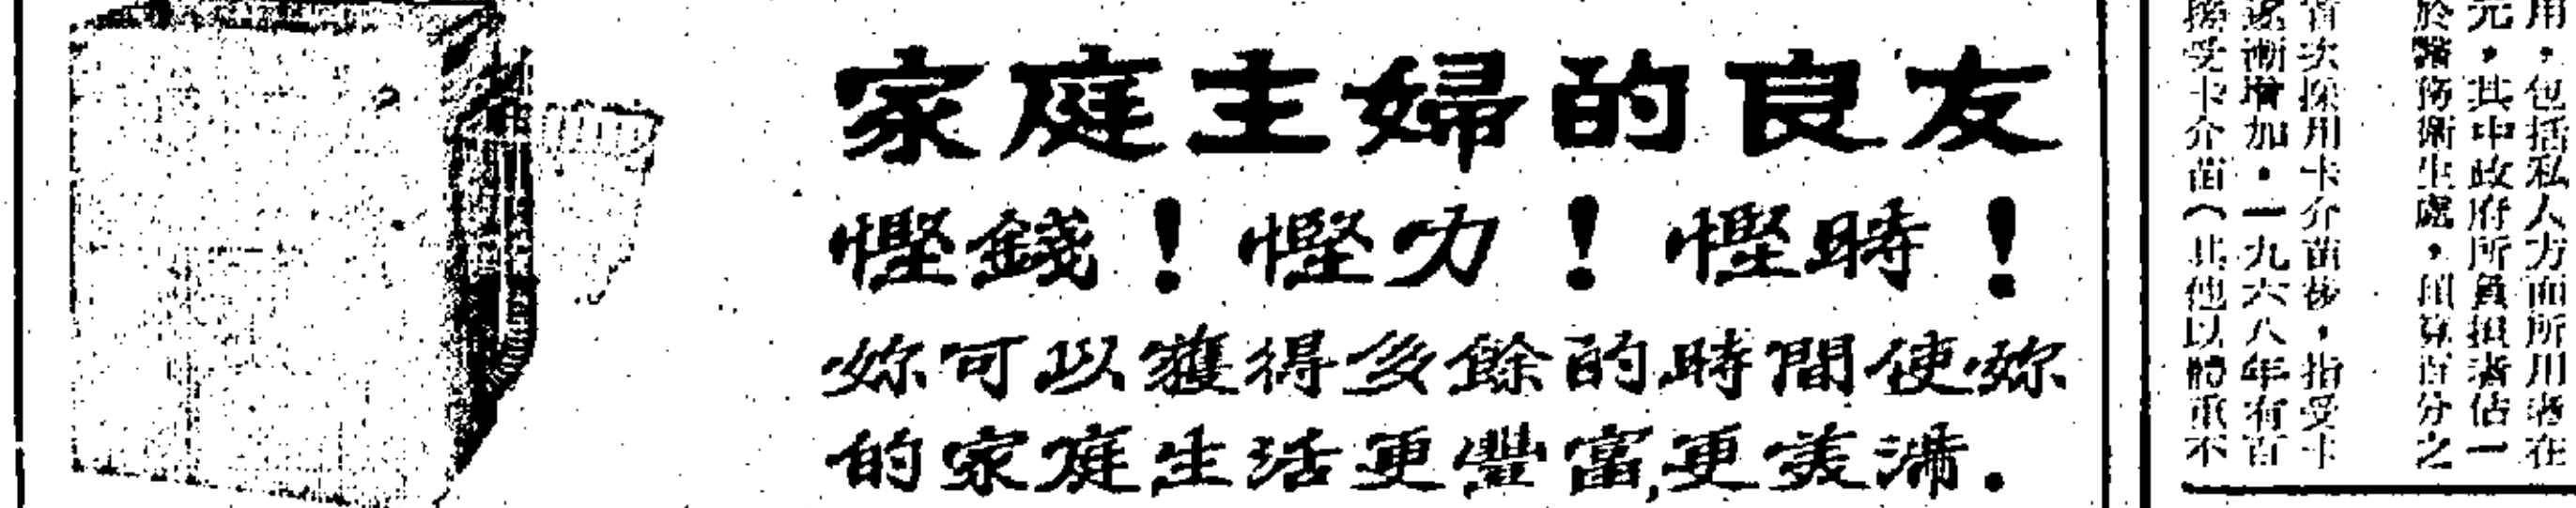 家庭主婦的良友
慳錢！慳力！慳時！
妳可以獲得多餘的時間使妳
的家庭生活更豐富,更美满.
用，包括私人方面所用者在
元，其中政府所負担者佔一
於醫務衛生處，預算百分之
首次採用卡介苗後，指受卡
逐漸增加，一九六八年有百
接受卡介苗（其他以體重不